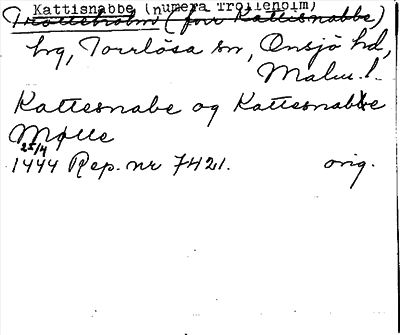 Kattisnabbe (numera Trolleholm)
Trolleholm (förr Kattisnabbe)
hg, Torrlösa sn, Onsjö hd,
Malm. l.
Kattesnabe og Kattesnabbe
Mølle
25/4
1444 Rep. nr 7421. orig.